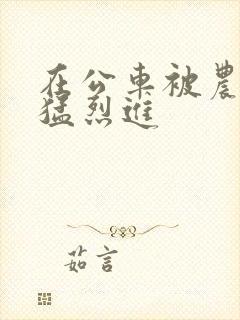 在公車被農
猛烈進
茹言